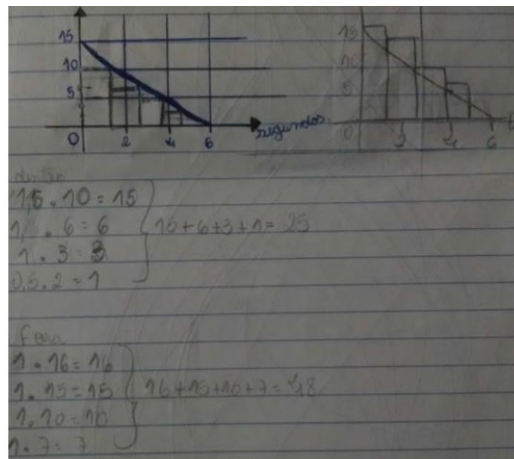 15
10
5
0 2 4 6 segundos
15
10
5
0 2 4 6 t
dentro
1,5 . 10 = 15
1 . 6 = 6
1 . 3 = 3
0,5 . 2 = 1
15+6+3+1= 25
fora
1 . 16 = 16
1 . 15 = 15
1 . 10 = 10
1 . 7 = 7
16+15+10+7= 48